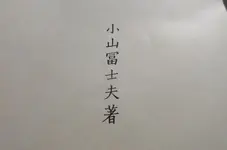 小山冨士夫著